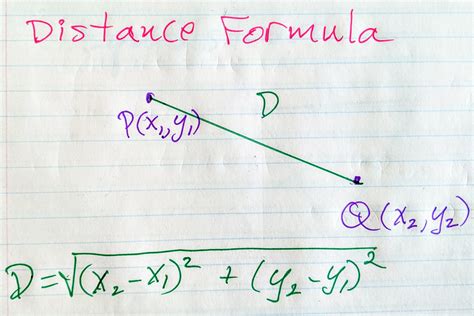 Distance Formula
D
P(x₁,y₁)
Q(x₂,y₂)
D=√(x₂-x₁)² + (y₂-y₁)²